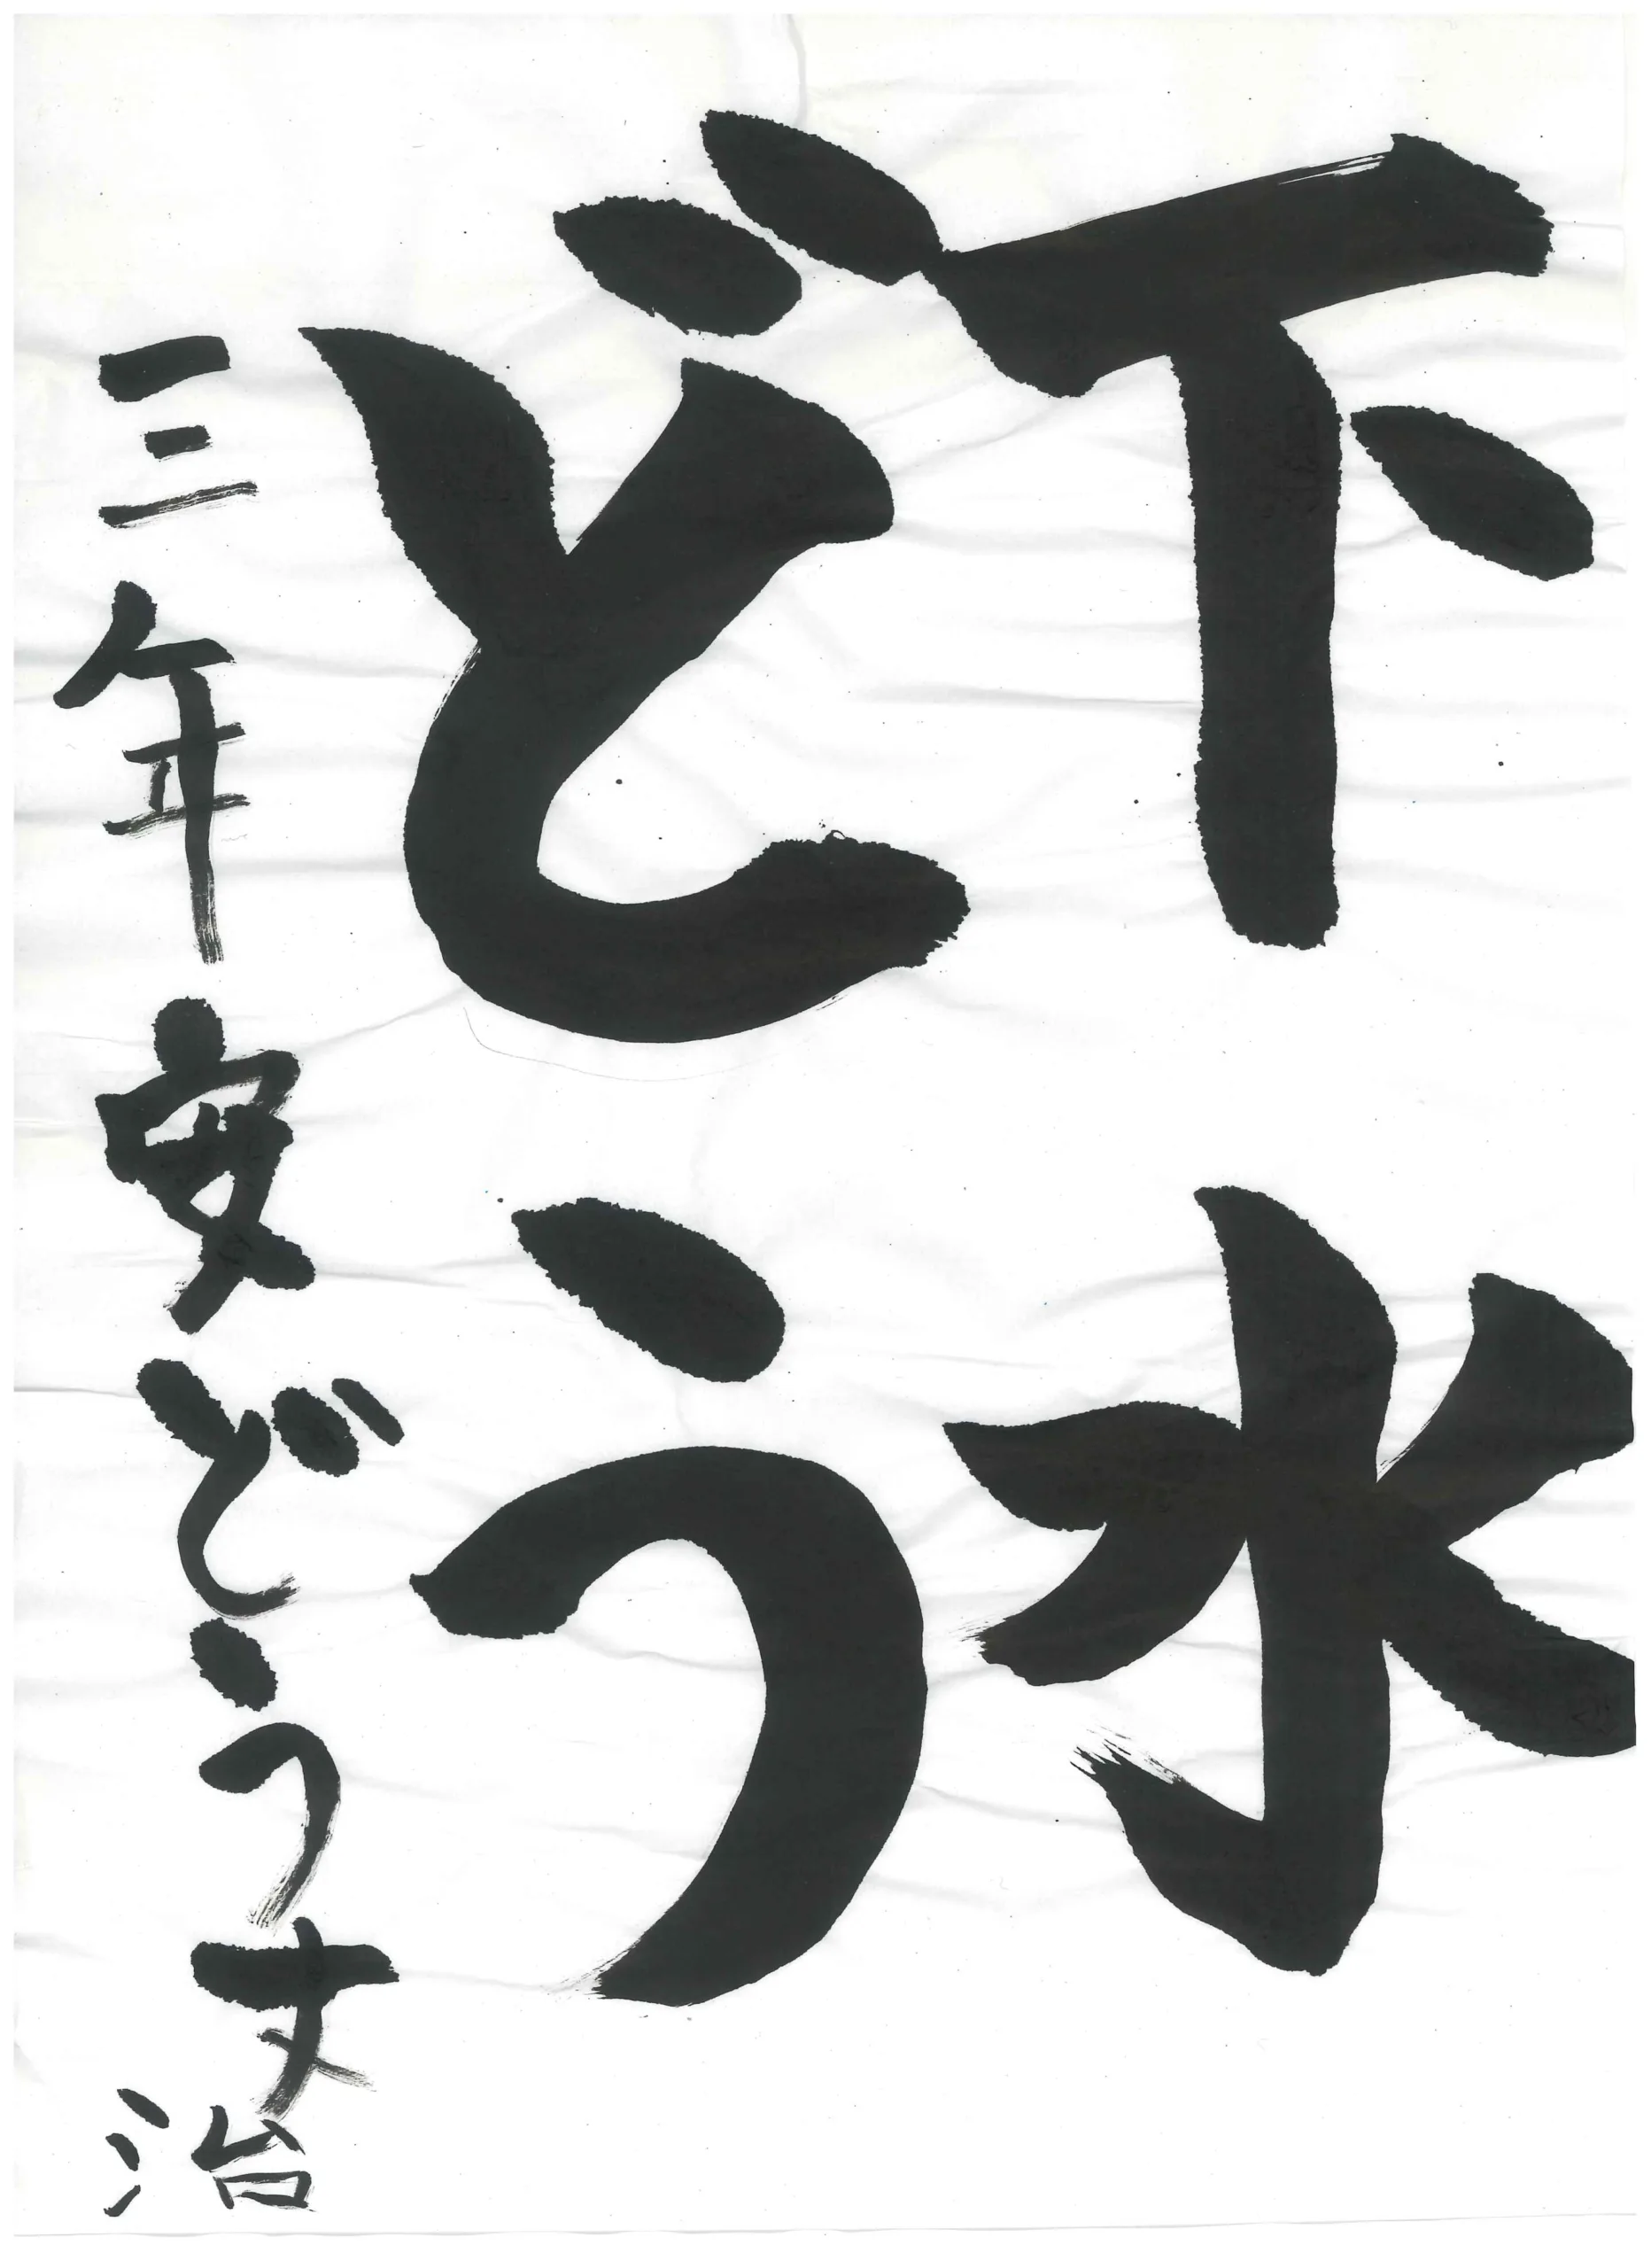 下水
どう
三年安どう丈治